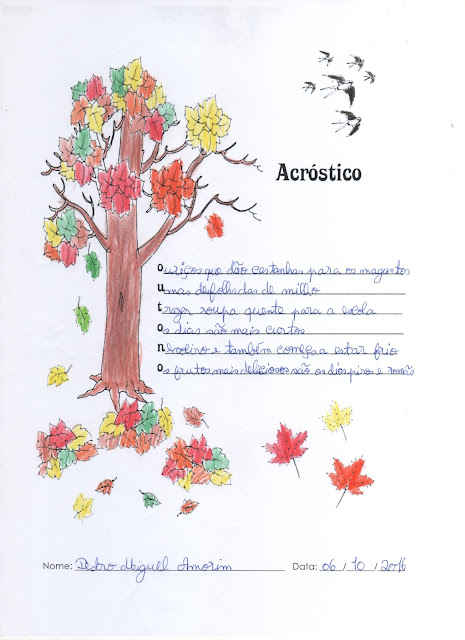 Acróstico
ouriços que dão castanhas para os magustos
umas desfolhadas de milho
trazer roupa quente para a escola
os dias são mais curtos
nevoeiro e também começa a estar frio
os frutos mais deliciosos são os dióspiros e romãs
Nome: Pedro Miguel Amorim Data: 06 / 10 / 2016